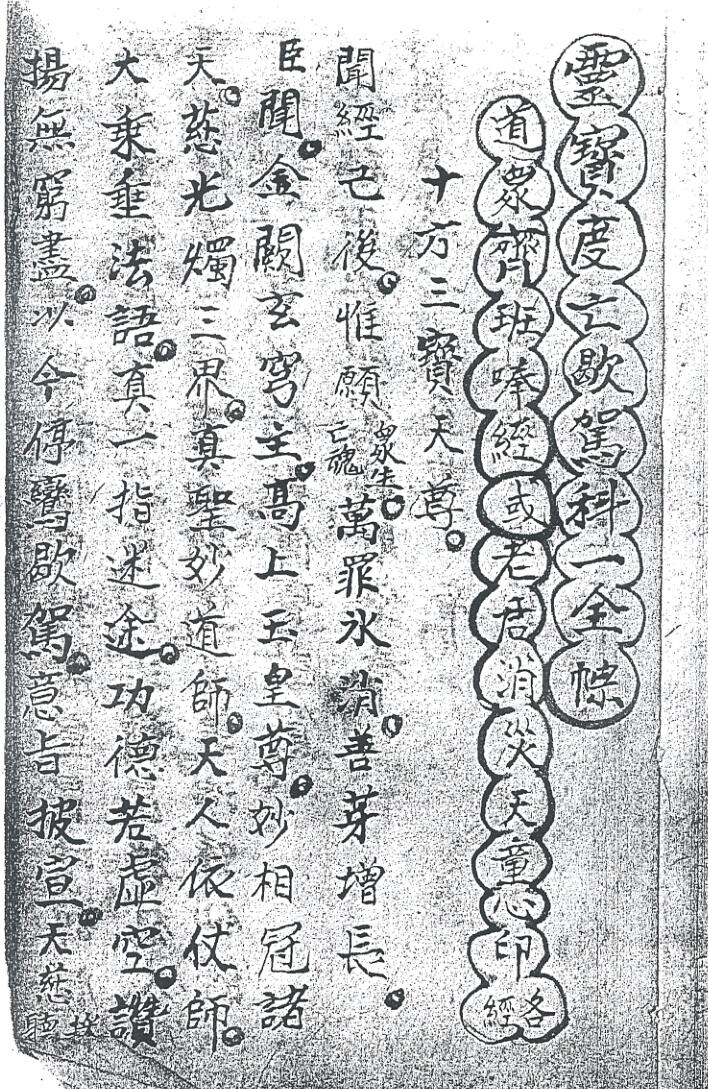 靈寶度亡歇駕科一全幖
道眾齊班唪經或老君消災天童心印各經
十方三寶天尊。
聞經已後。惟願眾生亡魂。萬罪氷消。善芽增長。
臣聞。金闕玄穹主。高上玉皇尊。妙相冠諸
天。慈光燭三界。真聖妙道師。天人依仗師。
大乘垂法語。真一指迷途。功德若虛空。讚
揚無窮盡。以今停鸞歇駕。意旨披宣。天慈
聽